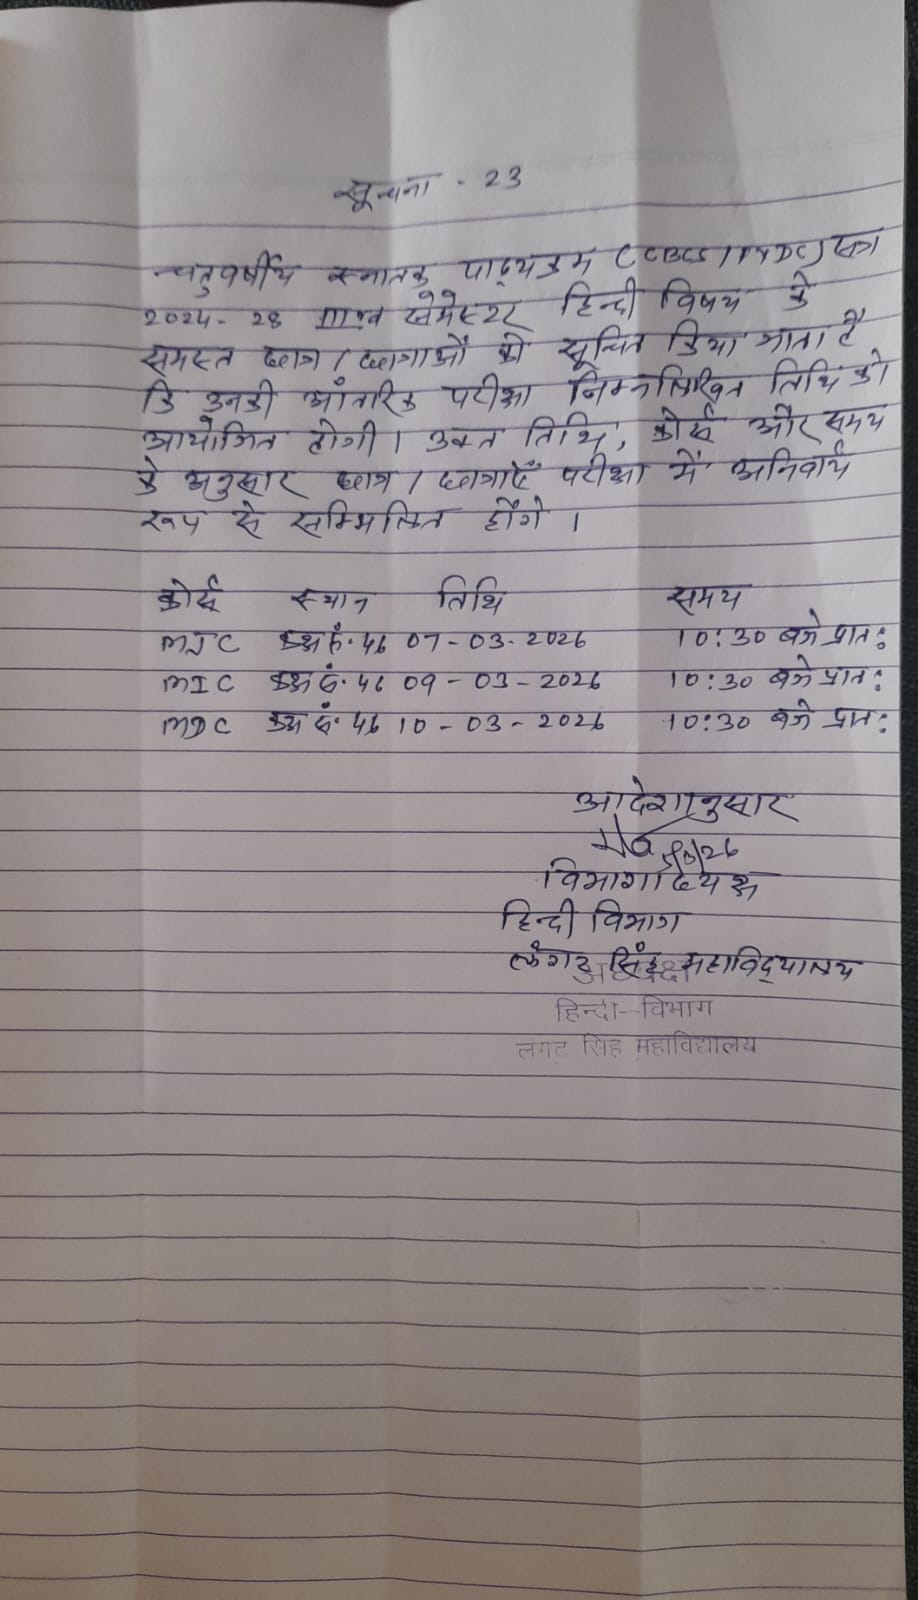 सूचना - 23
चतुवर्षीय स्नातक पाठ्यक्रम (CBCS/FYDC) सत्र
2024-28 सेमेस्टर हिन्दी विषय के
समस्त छात्र/छात्राओं को सूचित किया जाता है
कि उनकी आंतरिक परीक्षा निम्नलिखित तिथि को
आयोजित होगी। उक्त तिथि, कोर्स और समय
के अनुसार छात्र/छात्राएँ परीक्षा में अनिवार्य
रूप से सम्मिलित होंगे।
कोर्स स्थान तिथि समय
MJC कक्ष सं. 46 07-03-2026 10:30 बजे प्रातः
MIC कक्ष सं. 46 09-03-2026 10:30 बजे प्रातः
MDC कक्ष सं. 46 10-03-2026 10:30 बजे प्रातः
आदेशानुसार
विभागाध्यक्ष
हिन्दी विभाग
लंगट सिंह महाविद्यालय
अध्यक्ष
हिन्दी-विभाग
लंगट सिंह महाविद्यालय